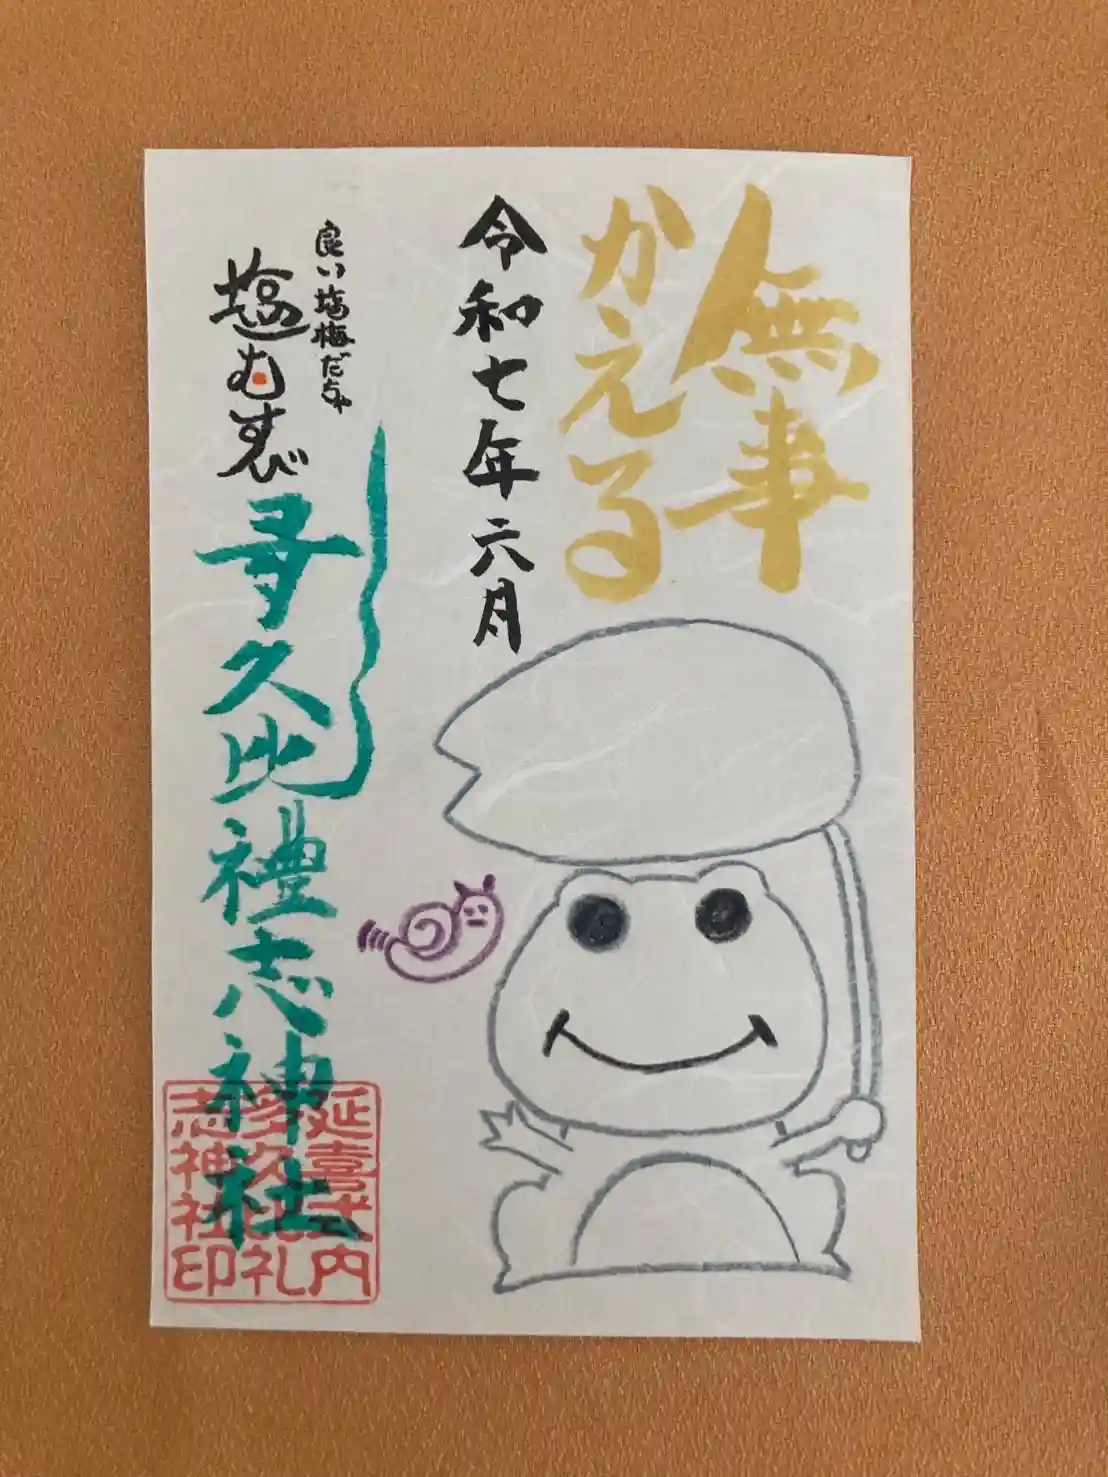 無事
かえる
令和七年六月
良い塩梅だちゃ
塩むすび
夛久比禮志神社
延喜式内
多久比礼
志神社印